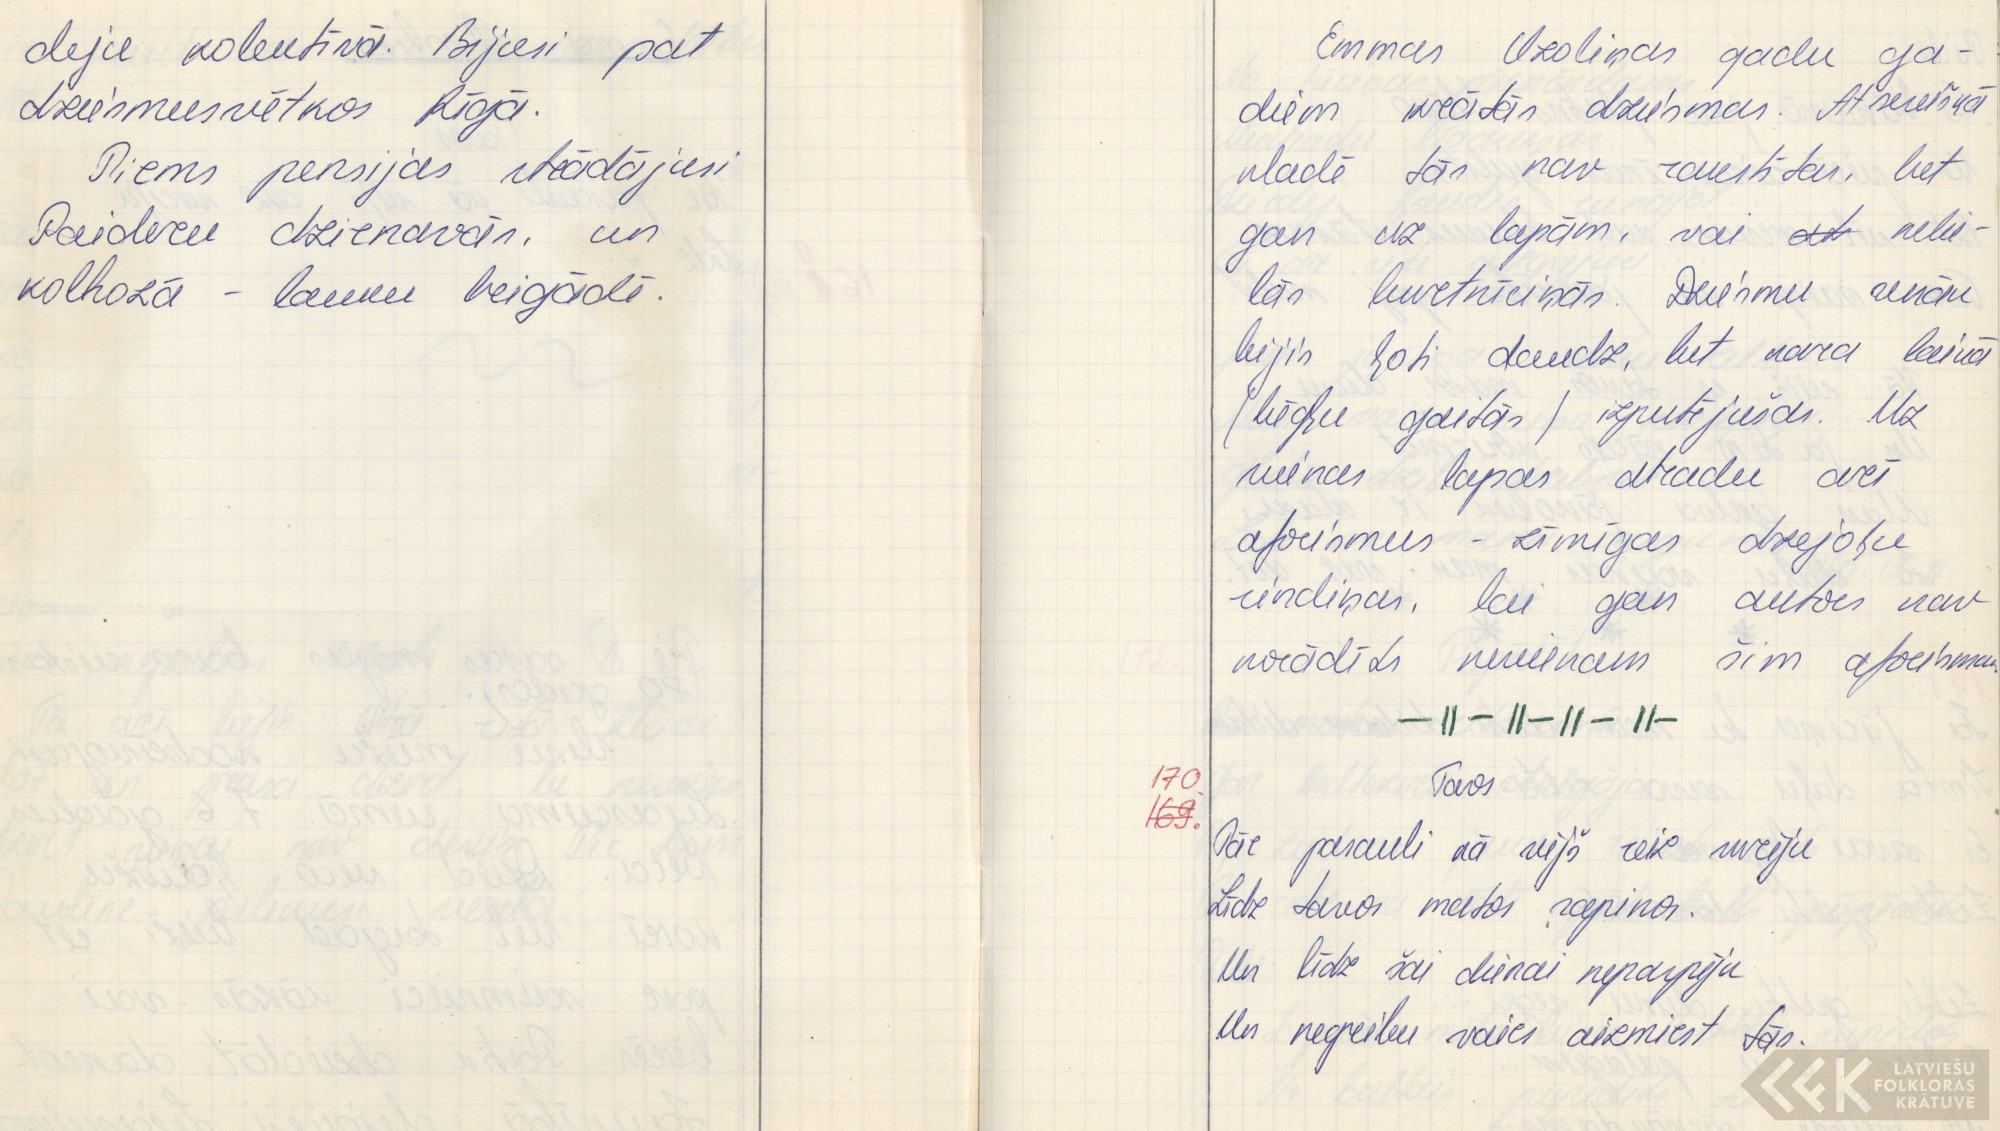 deju kolektīvā. Bijusi pat
dziesmusvētkos Rīgā.
Pirms pensijas strādājusi
Paideru dzirnavās, un
kolhozā - lauku brigādē.
Emmas Ozoliņas gadu ga-
diem krātās dziesmas. Atsevišķā
kladē tās nav rakstītas, bet
gan uz lapām, vai nelie-
lās burtnīciņās. Dziesmu senāk
bijis ļoti daudz, bet kara laikā
/bēgļu gaitās/ izputējušas. Uz
vienas lapas atradu arī
aforismus - zīmīgas dzejoļu
rindiņas, lai gan autors nav
norādīts nevienam šim aforismam.
170.
169.
Tavos
Pār pasauli kā vējš reiz skrēju
Līdz tavos matos sapinos.
Un līdz šai dienai nepaspēju
Un negribu vairs aizmirst tās.
LATVIEŠU
FOLKLORAS
KRĀTUVE